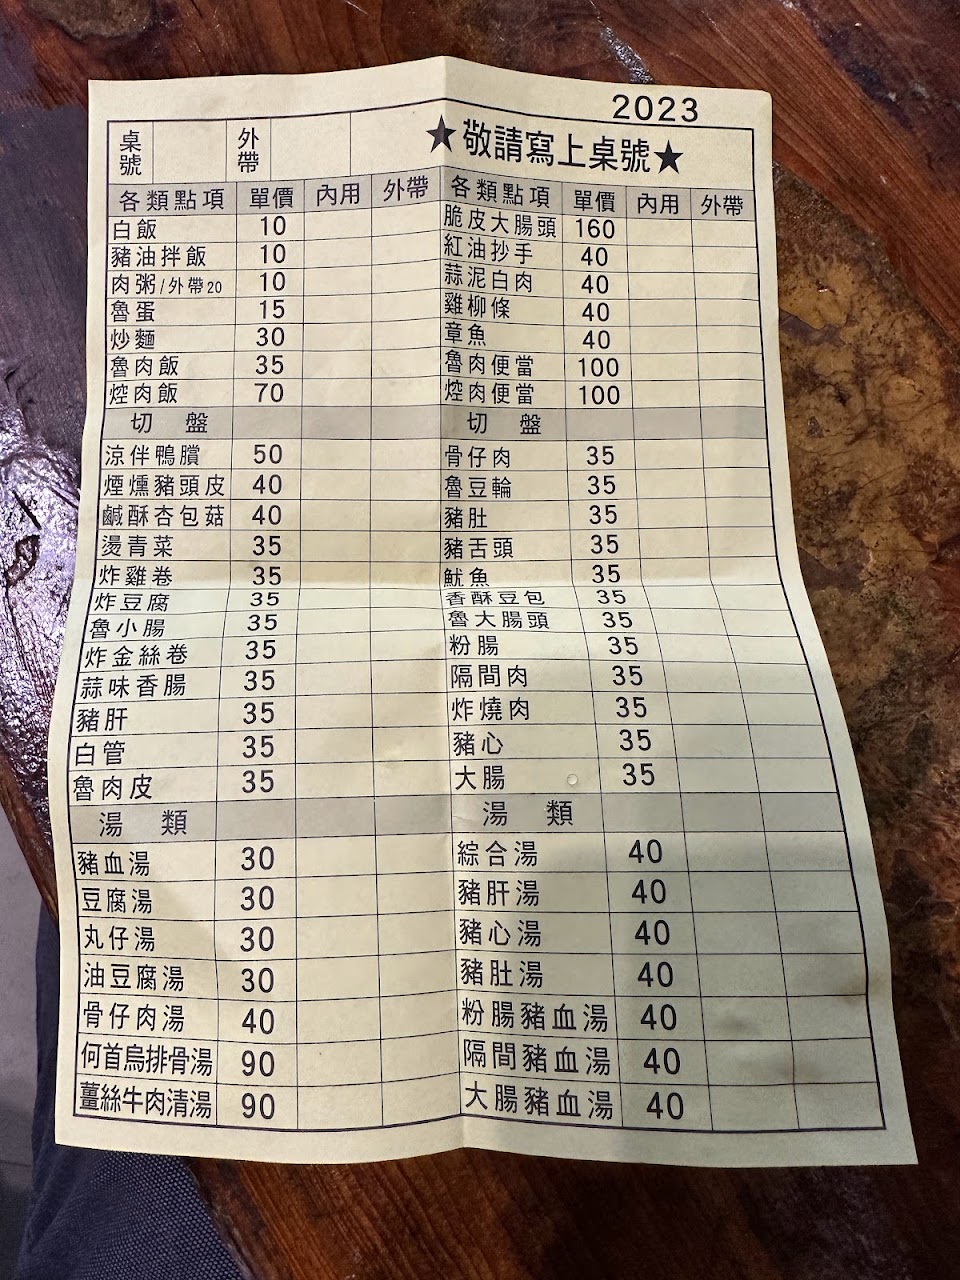 2023
桌號 外帶 ★敬請寫上桌號★
各類點項 單價 內用 外帶 各類點項 單價 內用 外帶
白飯 10 脆皮大腸頭 160
豬油拌飯 10 紅油抄手 40
肉粥/外帶20 10 蒜泥白肉 40
魯蛋 15 雞柳條 40
炒麵 30 章魚 40
魯肉飯 35 魯肉便當 100
焢肉飯 70 焢肉便當 100
切盤 切盤
涼伴鴨膶 50 骨仔肉 35
煙燻豬頭皮 40 魯豆輪 35
鹹酥杏包菇 40 豬肚 35
燙青菜 35 豬舌頭 35
炸雞卷 35 魷魚 35
炸豆腐 35 香酥豆包 35
魯小腸 35 魯大腸頭 35
炸金絲卷 35 粉腸 35
蒜味香腸 35 隔間肉 35
豬肝 35 炸燒肉 35
白管 35 豬心 35
魯肉皮 35 大腸 35
湯類 湯類
豬血湯 30 綜合湯 40
豆腐湯 30 豬肝湯 40
丸仔湯 30 豬心湯 40
油豆腐湯 30 豬肚湯 40
骨仔肉湯 40 粉腸豬血湯 40
何首烏排骨湯 90 隔間豬血湯 40
薑絲牛肉清湯 90 大腸豬血湯 40